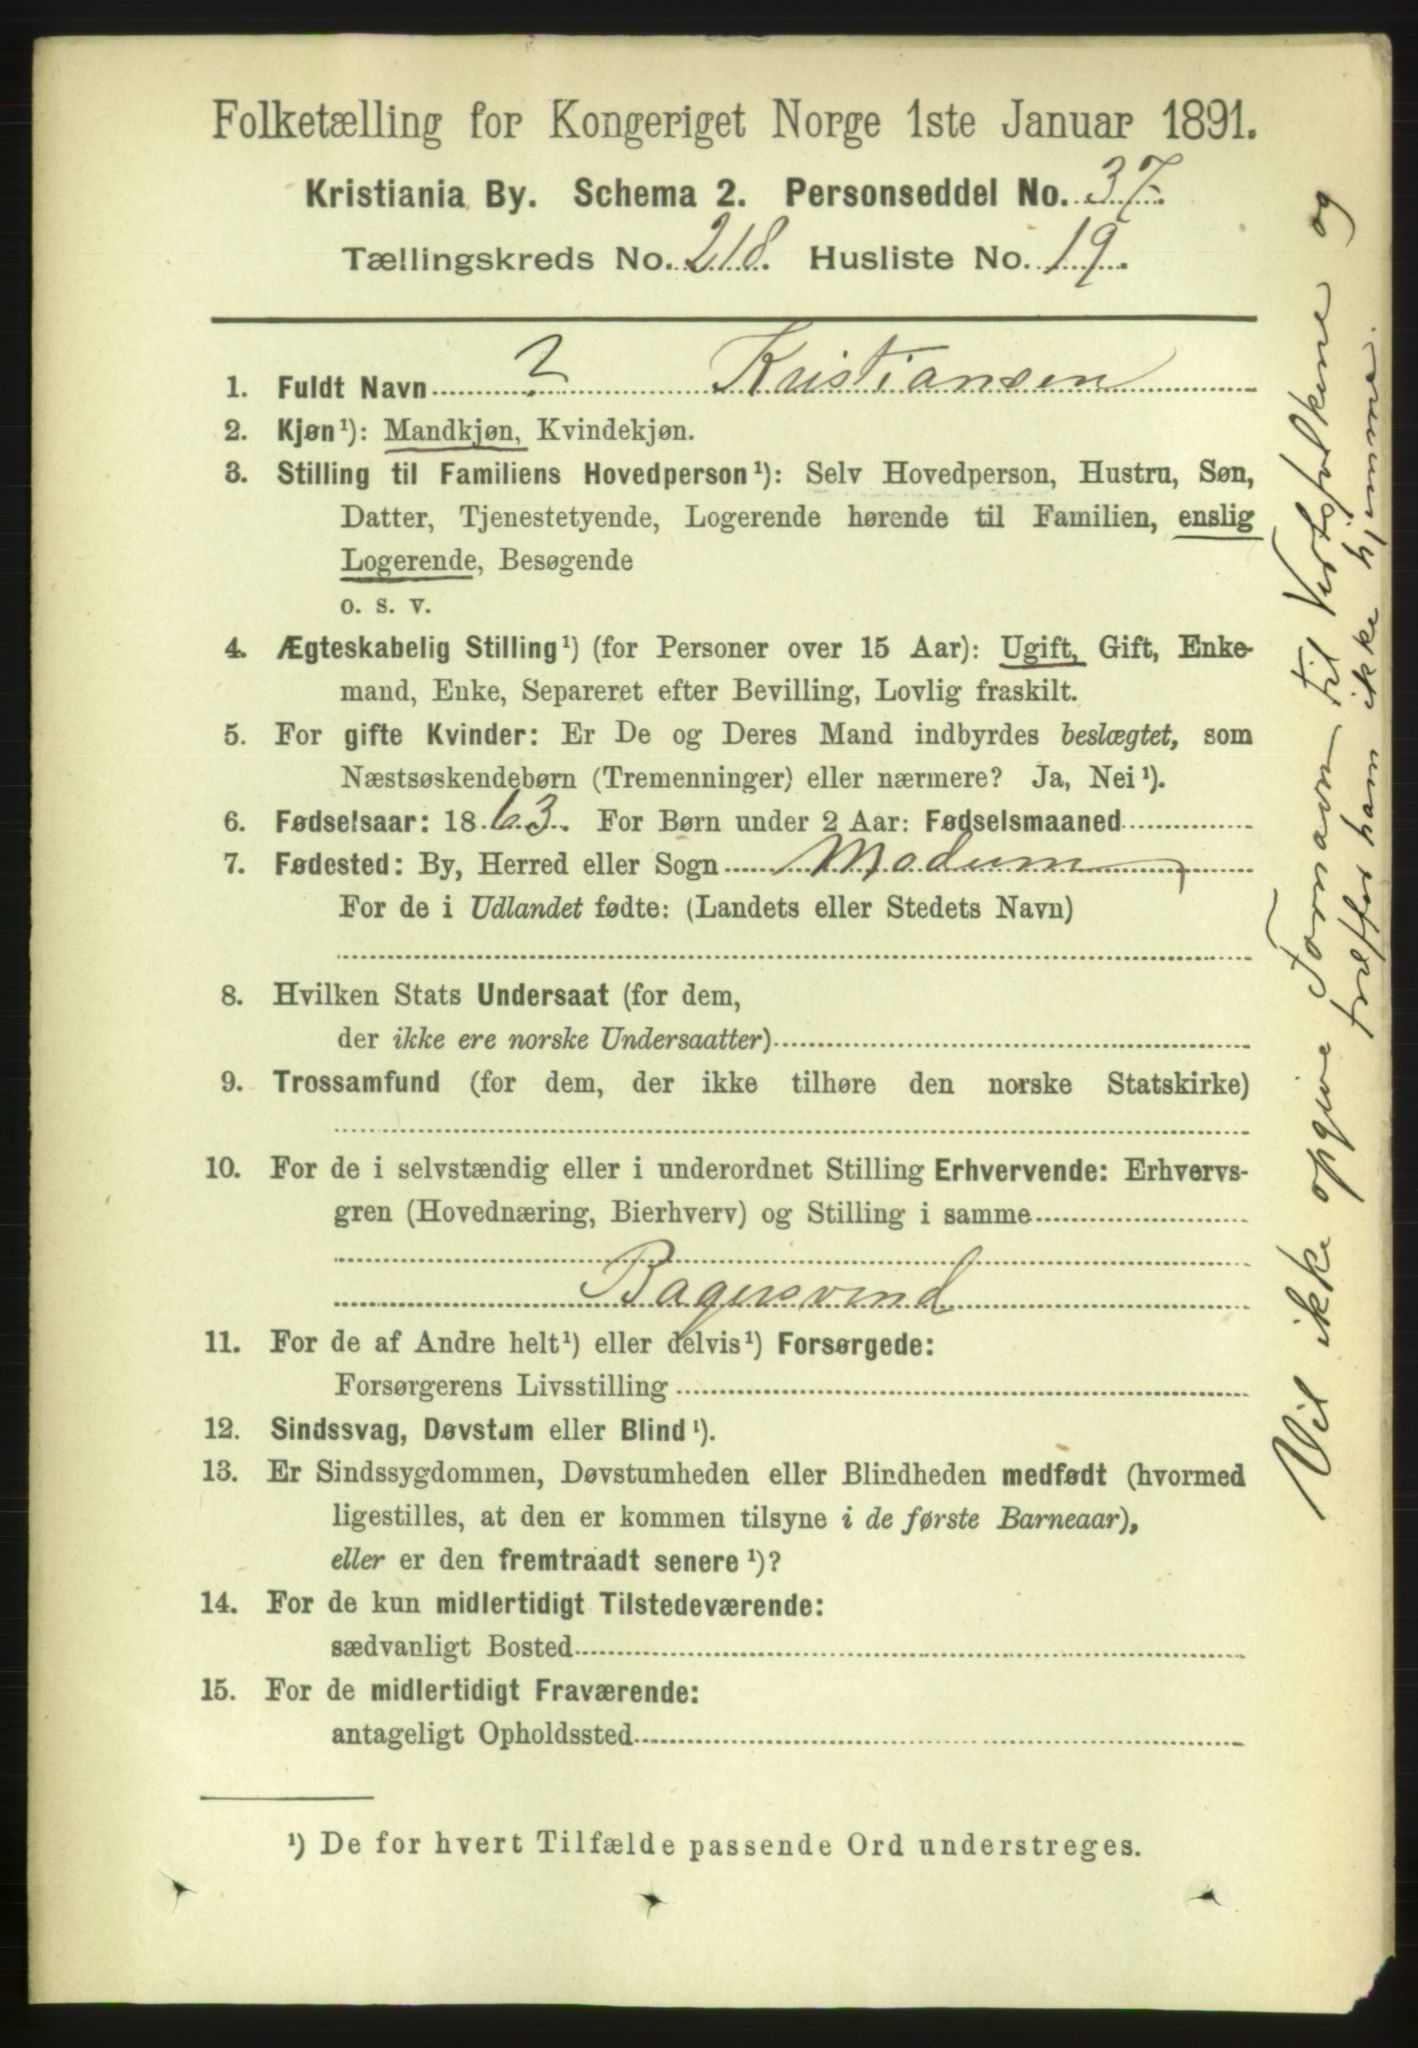 Folketælling for Kongeriget Norge 1ste Januar 1891.
Kristiania By. Schema 2. Personseddel No. 37.
Tællingskreds No. 218. Husliste No. 19.
1. Fuldt Navn ? Kristiansen
2. Kjøn¹): Mandkjøn, Kvindekjøn.
3. Stilling til Familiens Hovedperson¹): Selv Hovedperson, Hustru, Søn,
Datter, Tjenestetyende, Logerende hørende til Familien, enslig
Logerende, Besøgende
o. s. v.
4. Ægteskabelig Stilling¹) (for Personer over 15 Aar): Ugift, Gift, Enke-
mand, Enke, Separeret efter Bevilling, Lovlig fraskilt.
5. For gifte Kvinder: Er De og Deres Mand indbyrdes beslægtet, som
Næstsøskendebørn (Tremenninger) eller nærmere? Ja, Nei¹).
6. Fødselsaar: 1863. For Børn under 2 Aar: Fødselsmaaned
7. Fødested: By, Herred eller Sogn Modum
For de i Udlandet fødte: (Landets eller Stedets Navn)
8. Hvilken Stats Undersaat (for dem,
der ikke ere norske Undersaatter)
9. Trossamfund (for dem, der ikke tilhøre den norske Statskirke)
10. For de i selvstændig eller i underordnet Stilling Erhvervende: Erhvervs-
gren (Hovednæring, Bierhverv) og Stilling i samme
Bagersvend
11. For de af Andre helt¹) eller delvis¹) Forsørgede:
Forsørgerens Livsstilling
12. Sindssvag, Døvstum eller Blind¹).
13. Er Sindssygdommen, Døvstumheden eller Blindheden medfødt (hvormed
ligestilles, at den er kommen tilsyne i de første Barneaar),
eller er den fremtraadt senere¹)?
14. For de kun midlertidigt Tilstedeværende:
sædvanligt Bosted
15. For de midlertidigt Fraværende:
antageligt Opholdssted
¹) De for hvert Tilfælde passende Ord understreges.
Vil ikke opgive Fornavn til Vertsfolkene og
træffes ham ikke hjemme.